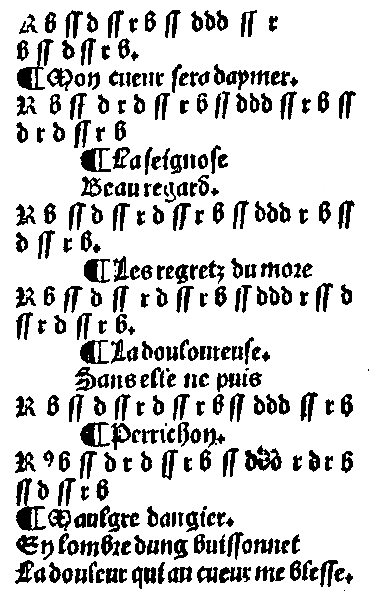 R b ſſ d ſſ r b ſſ ddd ſſ r
b ſſ d ſſ r b.
¶ Mon cueur sera daymer.
R b ſſ d r d ſſ r b ſſ ddd ſſ r b ſſ
d r d ſſ r b
¶ La seignose
Beau regard.
R b ſſ d ſſ r d ſſ r b ſſ ddd r b ſſ
d ſſ r b.
¶ Les regretz du more
R b ſſ d ſſ r d ſſ r b ſſ ddd r ſſ d
ſſ r d ſſ r b.
¶ La douloureuse.
Sans elle ne puis
R b ſſ d ſſ r d ſſ r b ſſ ddd ſſ r b
¶ Perrichon.
R 9 b ſſ d r d ſſ r b ſſ ddd r d r b
ſſ d ſſ r b
¶ Maulgre dangier.
En lombre dung buissonnet
La douleur qui au cueur me blesse.